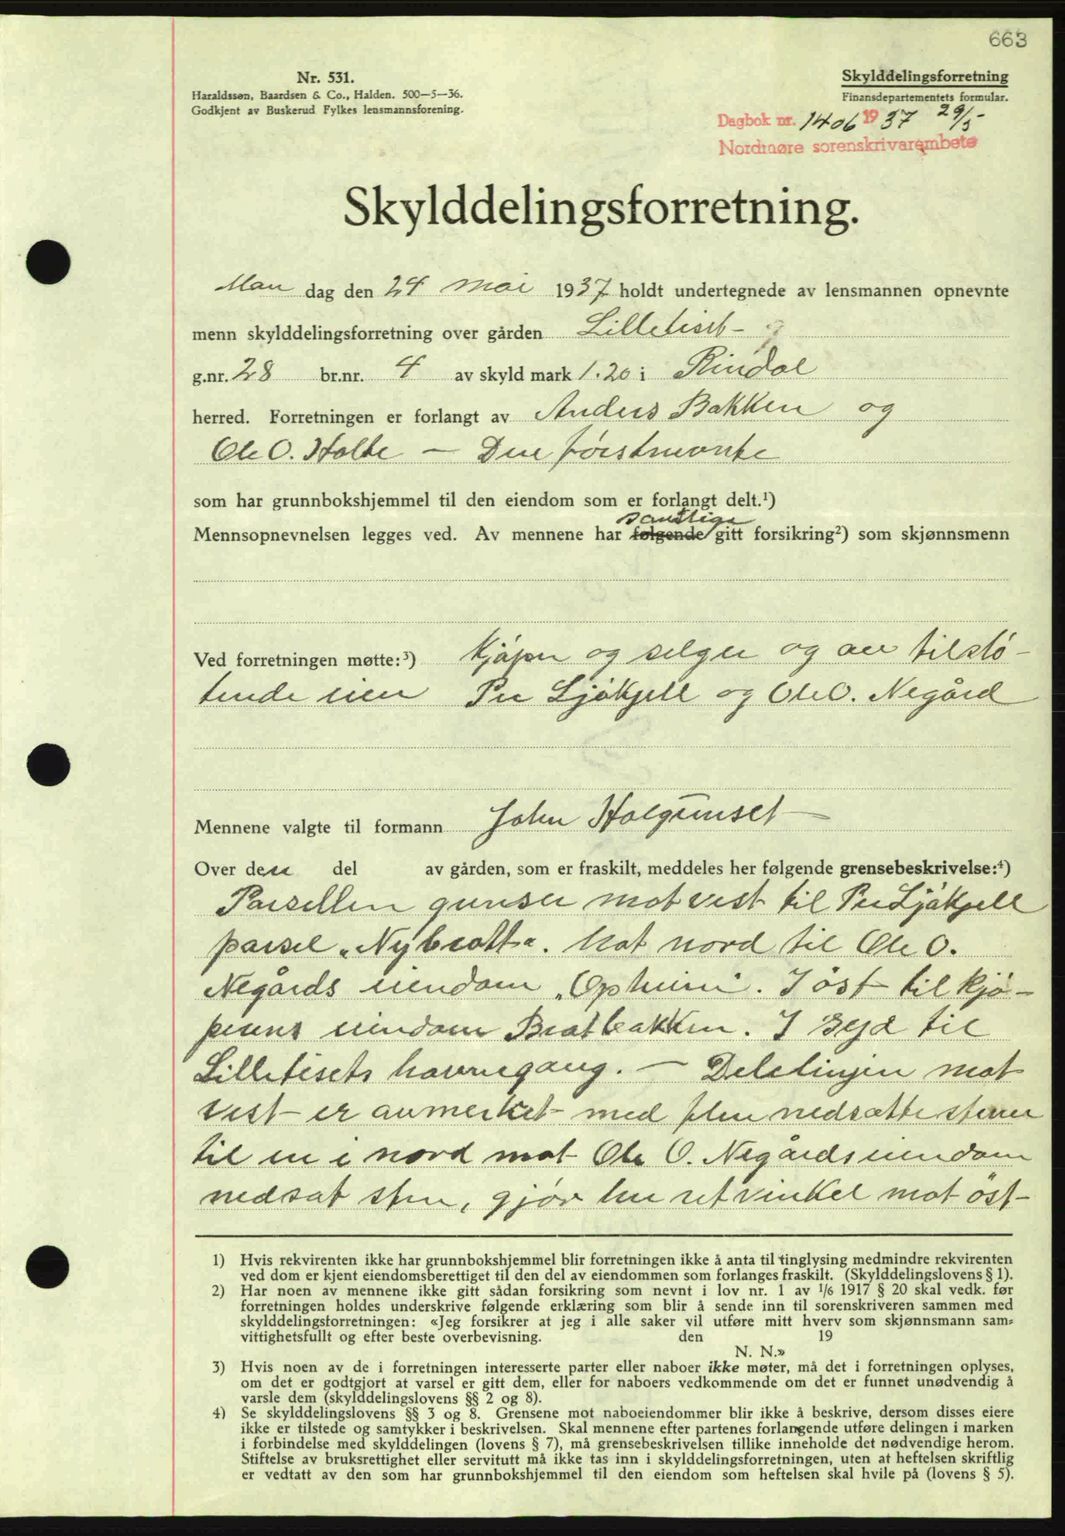 663
Nr. 531.
Haraldssøn, Baardsen & Co., Halden. 500—5—36.
Godkjent av Buskerud Fylkes lensmannsforening.
Skylddelingsforretning
Finansdepartementets formular.
Dagbok nr. 1406 1937 29/5
Nordmøre sorenskrivarembete
Skylddelingsforretning.
Man dag den 24 mai 1937 holdt undertegnede av lensmannen opnevnte
menn skylddelingsforretning over gården Lilletiset
g.nr. 28 br.nr. 4 av skyld mark 1.20 i Rindal
herred. Forretningen er forlangt av Anders Bakken og
Ole O. Holte — Den førstnevnte
som har grunnbokshjemmel til den eiendom som er forlangt delt.¹)
Mennsopnevnelsen legges ved. Av mennene har følgende samtlige gitt forsikring²) som skjønnsmenn
Ved forretningen møtte:³) Kjøper og selger og av tilstø-
tende eien Per Ljøkjell og Ole O. Negård
Mennene valgte til formann John Holgunset
Over den del av gården, som er fraskilt, meddeles her følgende grensebeskrivelse:⁴)
Parsellen grenser mot vest til Per Ljøkjell
parsel „Nybrott“. Mot nord til Ole O.
Negårds eiendom „Opheim“. I øst til kjø-
perens eiendom Bratbakken. I syd til
Lilletisets havnegang. — Delelinjen mot
vest er avmerket med flere nedsatte stener
til en i nord mot Ole O. Negårds eiendom
nedsat sten, gjør her ret vinkel mot øst-
1) Hvis rekvirenten ikke har grunnbokshjemmel blir forretningen ikke å anta til tinglysing medmindre rekvirenten
ved dom er kjent eiendomsberettiget til den del av eiendommen som forlanges fraskilt. (Skylddelingslovens § 1).
2) Har noen av mennene ikke gitt sådan forsikring som nevnt i lov nr. 1 av 1/6 1917 § 20 skal vedk. før
forretningen holdes underskrive følgende erklæring som blir å sende inn til sorenskriveren sammen med
skylddelingsforretningen: «Jeg forsikrer at jeg i alle saker vil utføre mitt hverv som skjønnsmann sam-
vittighetsfullt og efter beste overbevisning. den 19
N. N.»
3) Hvis noen av de i forretningen interesserte parter eller naboer ikke møter, må det i forretningen oplyses,
om det er godtgjort at varsel er gitt dem, eller for naboers vedkommende om det er funnet unødvendig å
varsle dem (skylddelingslovens §§ 2 og 8).
4) Se skylddelingslovens §§ 3 og 8. Grensene mot naboeiendommer blir ikke å beskrive, dersom disses eiere
ikke er tilstede og samtykker i beskrivelsen. Skal mennene efter partenes forlangende utføre delingen i marken
i forbindelse med skylddelingen (lovens § 7), må grensebeskrivelsen tillike inneholde det nødvendige herom.
Stiftelse av bruksrettighet eller servitutt må ikke tas inn i skylddelingsforretningen, uten at heftelsen skriftlig
er vedtatt av den som har grunnbokshjemmel til den eiendom som heftelsen skal hvile på (lovens § 5).